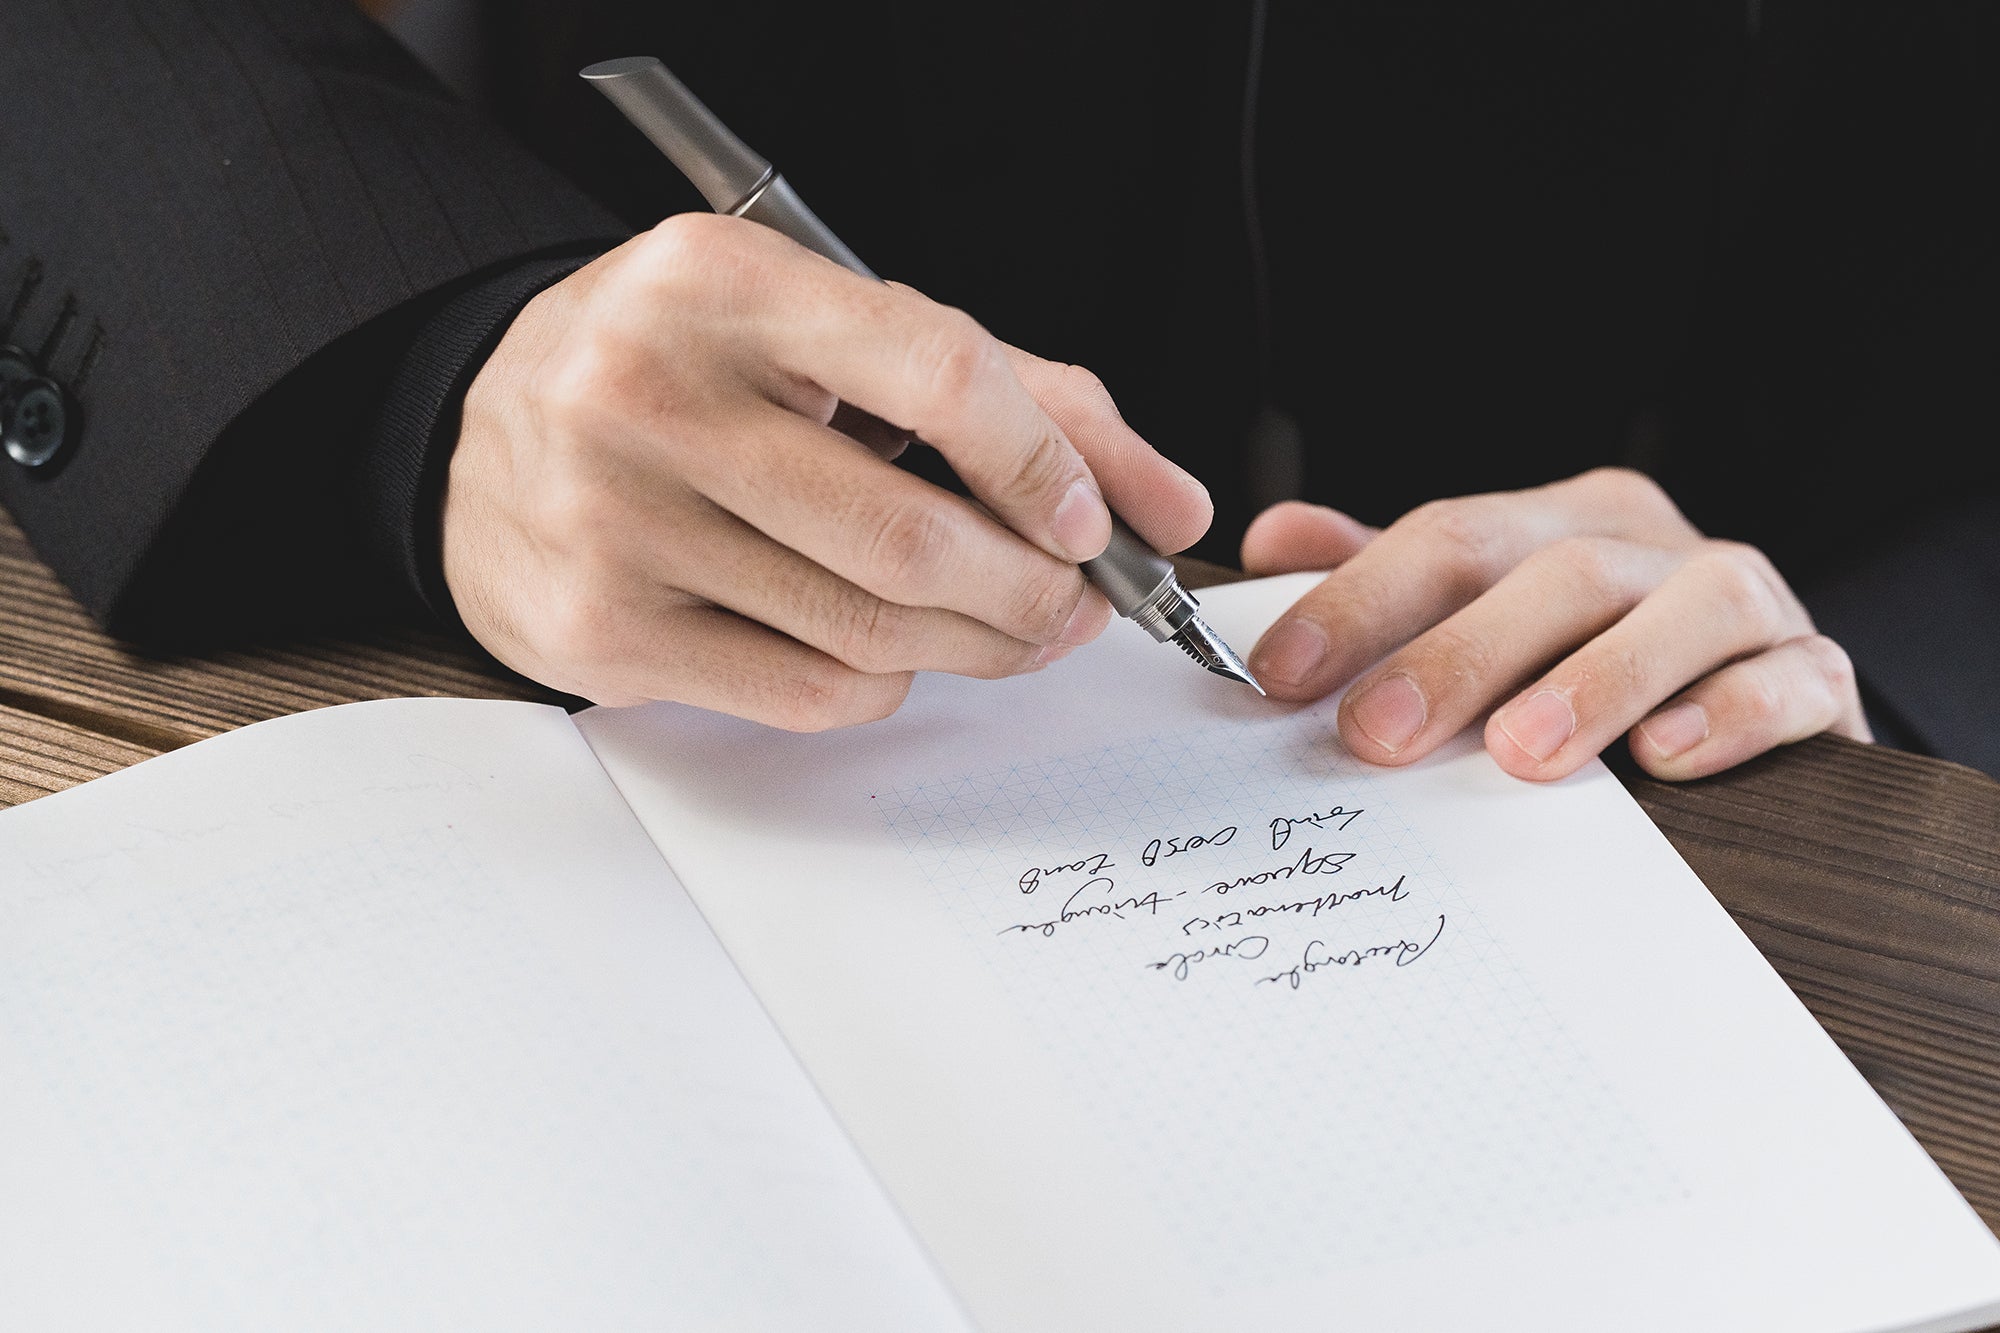 Rectangle Circle
mathematics
square - triangle
sinθ cosθ tanθ